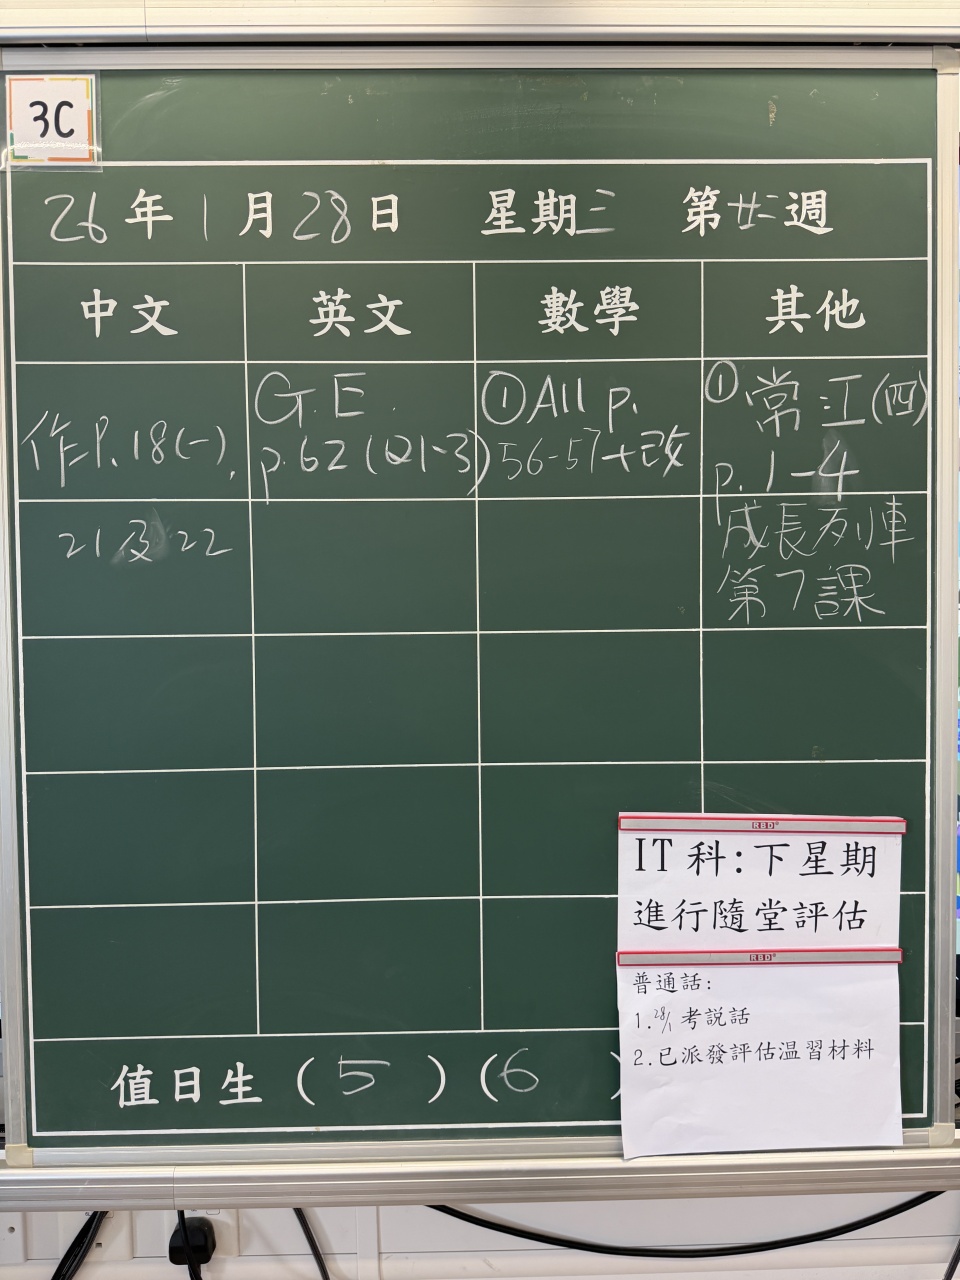 3C
26年1月28日 星期三 第廿二週
中文 英文 數學 其他
作P.18(一),
21及22
G.E.
p.62(Q1-3)
①All p.
56-57+改
①常江(四)
p.1-4
成長列車
第7課
RBD®
IT科:下星期
進行隨堂評估
RBD®
普通話:
1.28/1考説話
2.已派發評估温習材料
值日生(5)(6)